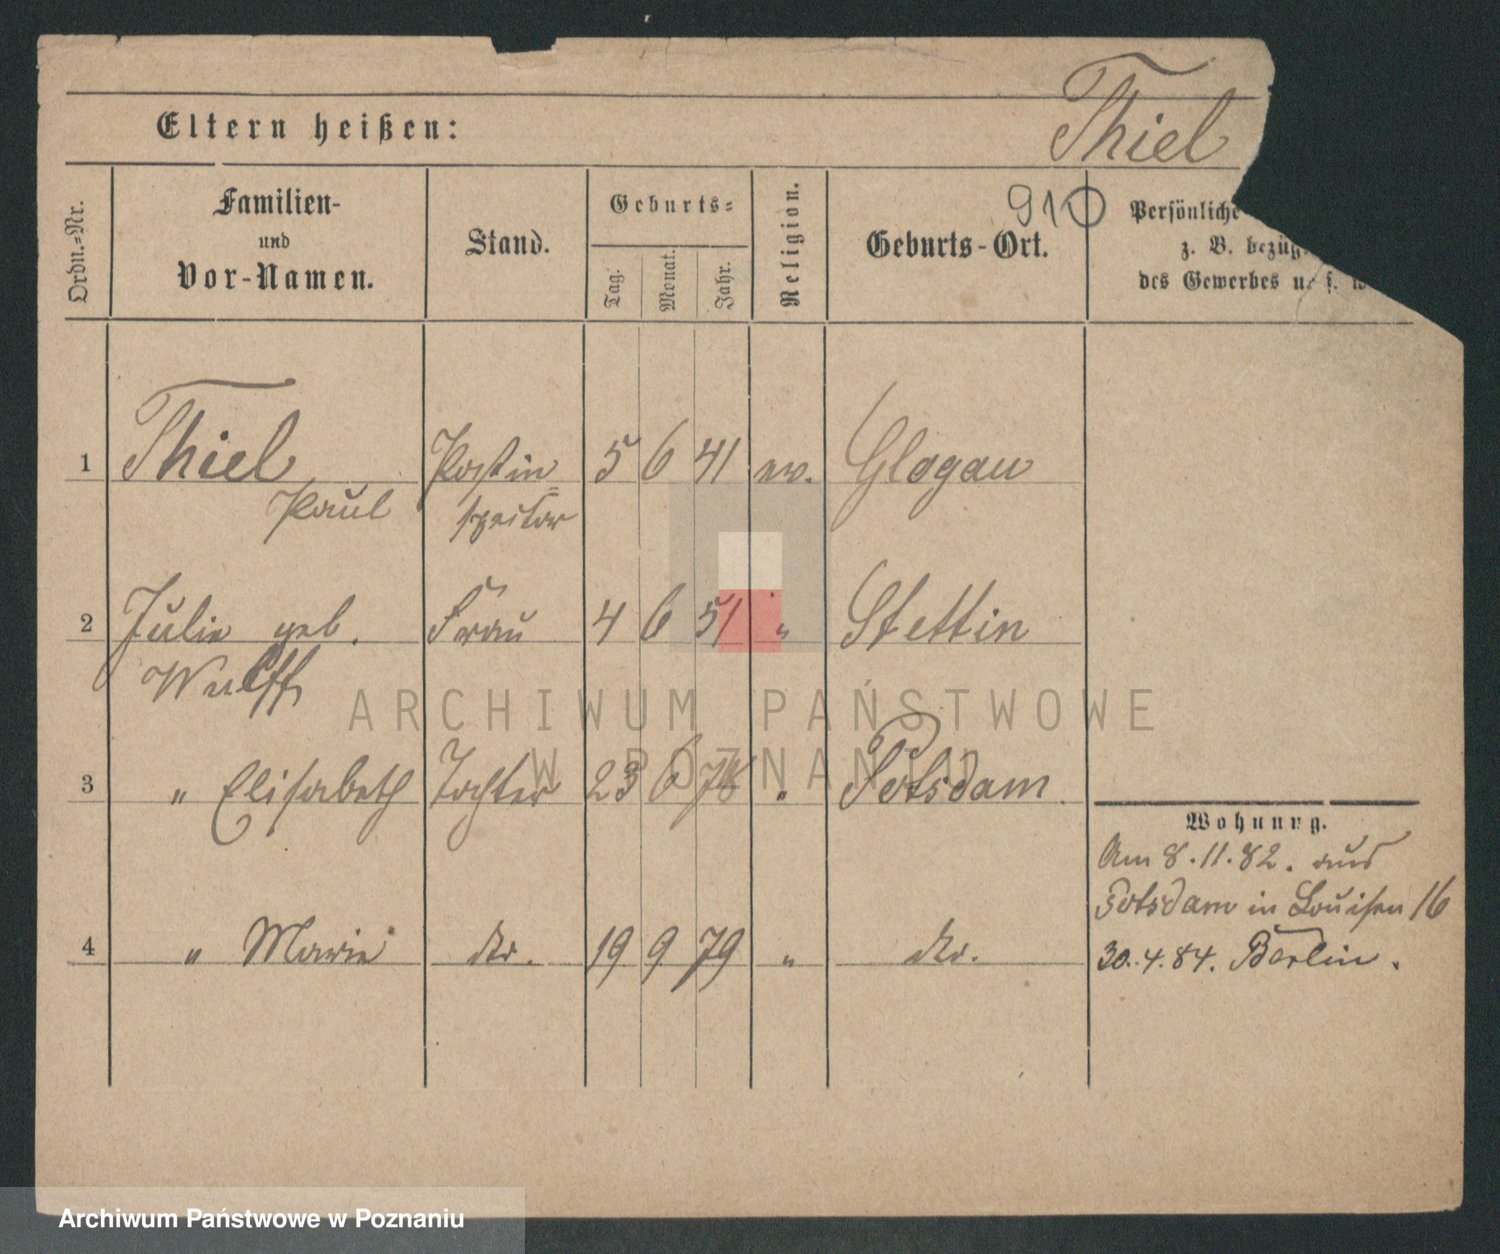 Thiel
Eltern heißen:
910
Ordn.-Nr.
Familien-
und
Vor-Namen.
Stand.
Geburts-
Tag.
Monat.
Jahr.
Religion.
Geburts-Ort.
Persönliche
z. B. bezüg
des Gewerbes u. s. w
1 Thiel Postin= 5 6 41 ev. Glogau
Paul spector
2 Julie geb. Frau 4 6 51 " Stettin
Wulff
3 " Elisabeth Tochter 23 6 78 " Potsdam
4 " Marie do. 19 9 79 " do.
Wohnung.
Am 8.11.82. aus
Potsdam in Louisen 16
30.4.84. Berlin.
ARCHIWUM PAŃSTWOWE
W POZNANIU
Archiwum Państwowe w Poznaniu